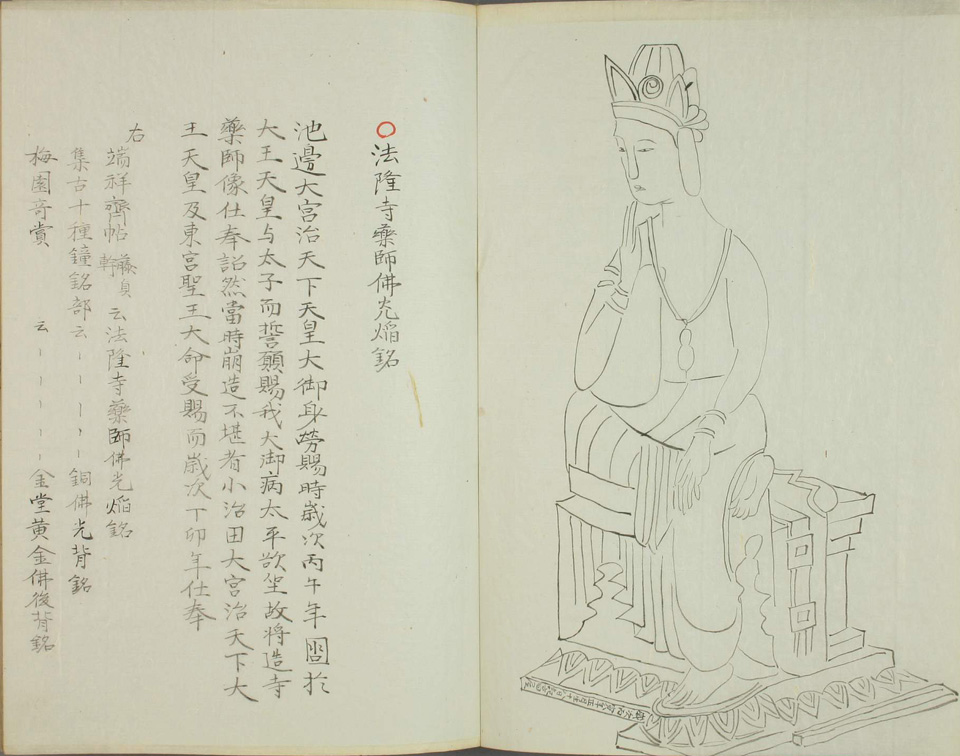 ○法隆寺藥師佛光焔銘
池邊大宮治天下天皇大御身勞賜時歳次丙午年 㘴於
大王天皇与太子而誓願賜我大御病太平欲坐故将造寺
藥師像仕奉詔然當時崩造不堪者小治田大宮治天下大
王天皇及東宮聖王大命受賜而歳次丁卯年仕奉
右
端祥齊帖 藤貞幹 云法隆寺藥師佛光焔銘
集古十種鐘銘部云 銅佛光背銘
梅園奇賞 云 金堂黄金佛後背銘